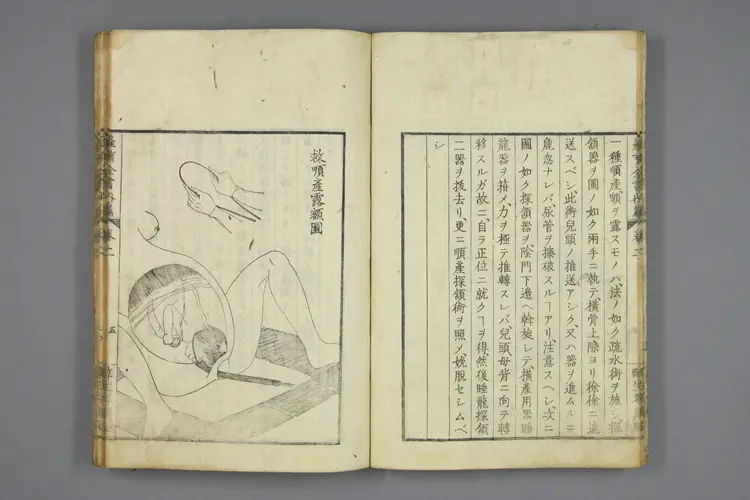 一種順產、額ヲ露スモノハ、法ノ如ク疏水術ヲ施シ、探
頷器ヲ圖ノ如ク兩手ニ執テ、橫骨上際ヨリ徐徐ニ進
送スベシ、此術兒頭ノ推送アシク、又ハ器ヲ進ムルニ
麁忽ナレバ、尿管ヲ擦破スルヿアリ、注意スヘシ、次ニ
圖ノ如ク探頷器ヲ、陰門下邊ヘ斡旋シテ、橫產用睡
龍器ヲ搭メ、力ヲ極テ推轉スレバ、兒頭母背ニ向テ轉
移スルガ故ニ、自ラ正位ニ就クヿヲ得、然後睡龍探頷
二器ヲ拨去リ、更ニ順產探頷術ヲ照メ、娩脫セシムベ
シ
救順產露額圖
卷之二
五